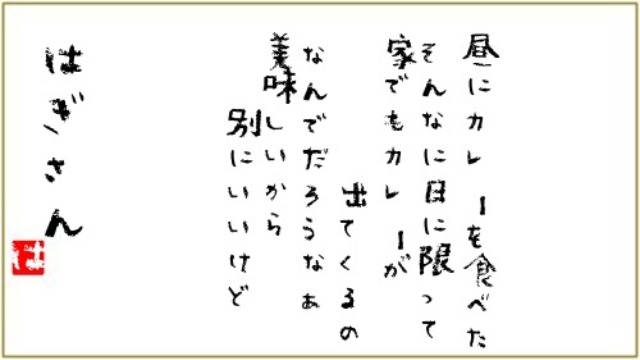 昼にカレーを食べた
そんなに日に限って
家でもカレーが
出てくるの
なんでだろうなぁ
美味しいから
別にいいけど
はぎさん
は